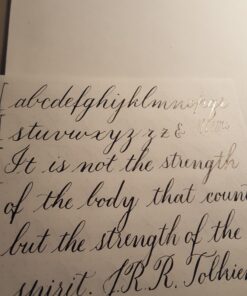 abcdefghijklmnopqr
stuvwxyz z z &
It is not the strength
of the body that count
but the strength of the
spirit. J.R.R. Tolkien